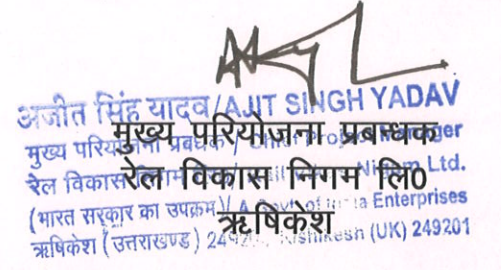 अजीत सिंह यादव/AJIT SINGH YADAV
मुख्य परियोजना प्रबन्धक
रेल विकास निगम लि0
ऋषिकेश
मुख्य परियोजना प्रबन्धक / Chief Project Manager
रेल विकास निगम Nigam Ltd.
(भारत सरकार का उपक्रम)/ A Govt. of India Enterprises
ऋषिकेश (उत्तराखण्ड) 249201, Rishikesh (UK) 249201